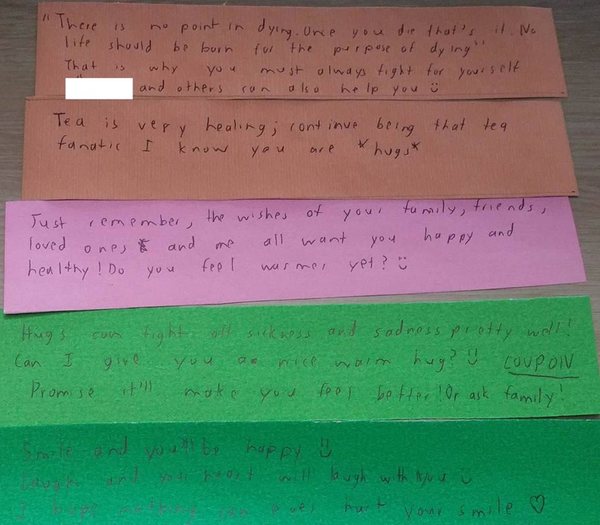 "There is no point in dying. Once you die that's it. No
life should be born for the purpose of dying"
That is why you must always fight for yourself
and others can also help you
Tea is very healing; continue being that tea
fanatic I know you are *hugs*
Just remember, the wishes of your family, friends,
loved ones and me all want you happy and
healthy! Do you feel warmer yet?
Hugs can fight off sickness and sadness pretty well!
Can I give you a nice warm hug? COUPON
Promise it'll make you feel better! Or ask family!
Smile and you'll be happy
Laugh and your heart will laugh with you
I hope nothing can ever hurt your smile ♡